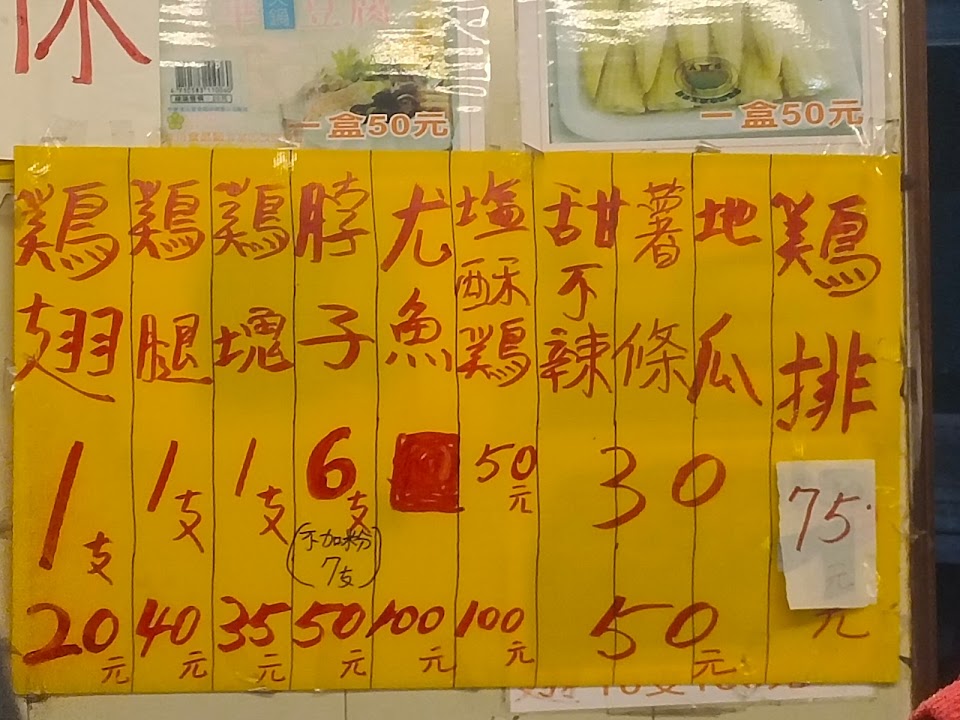 一盒50元
一盒50元
鷄排
75元
地瓜
薯條
甜不辣
30
50元
塩酥鷄
50元
100元
尤魚
100元
脖子
6支
(不加粉
7支)
50元
鷄塊
1支
35元
鷄腿
1支
40元
鷄翅
1支
20元